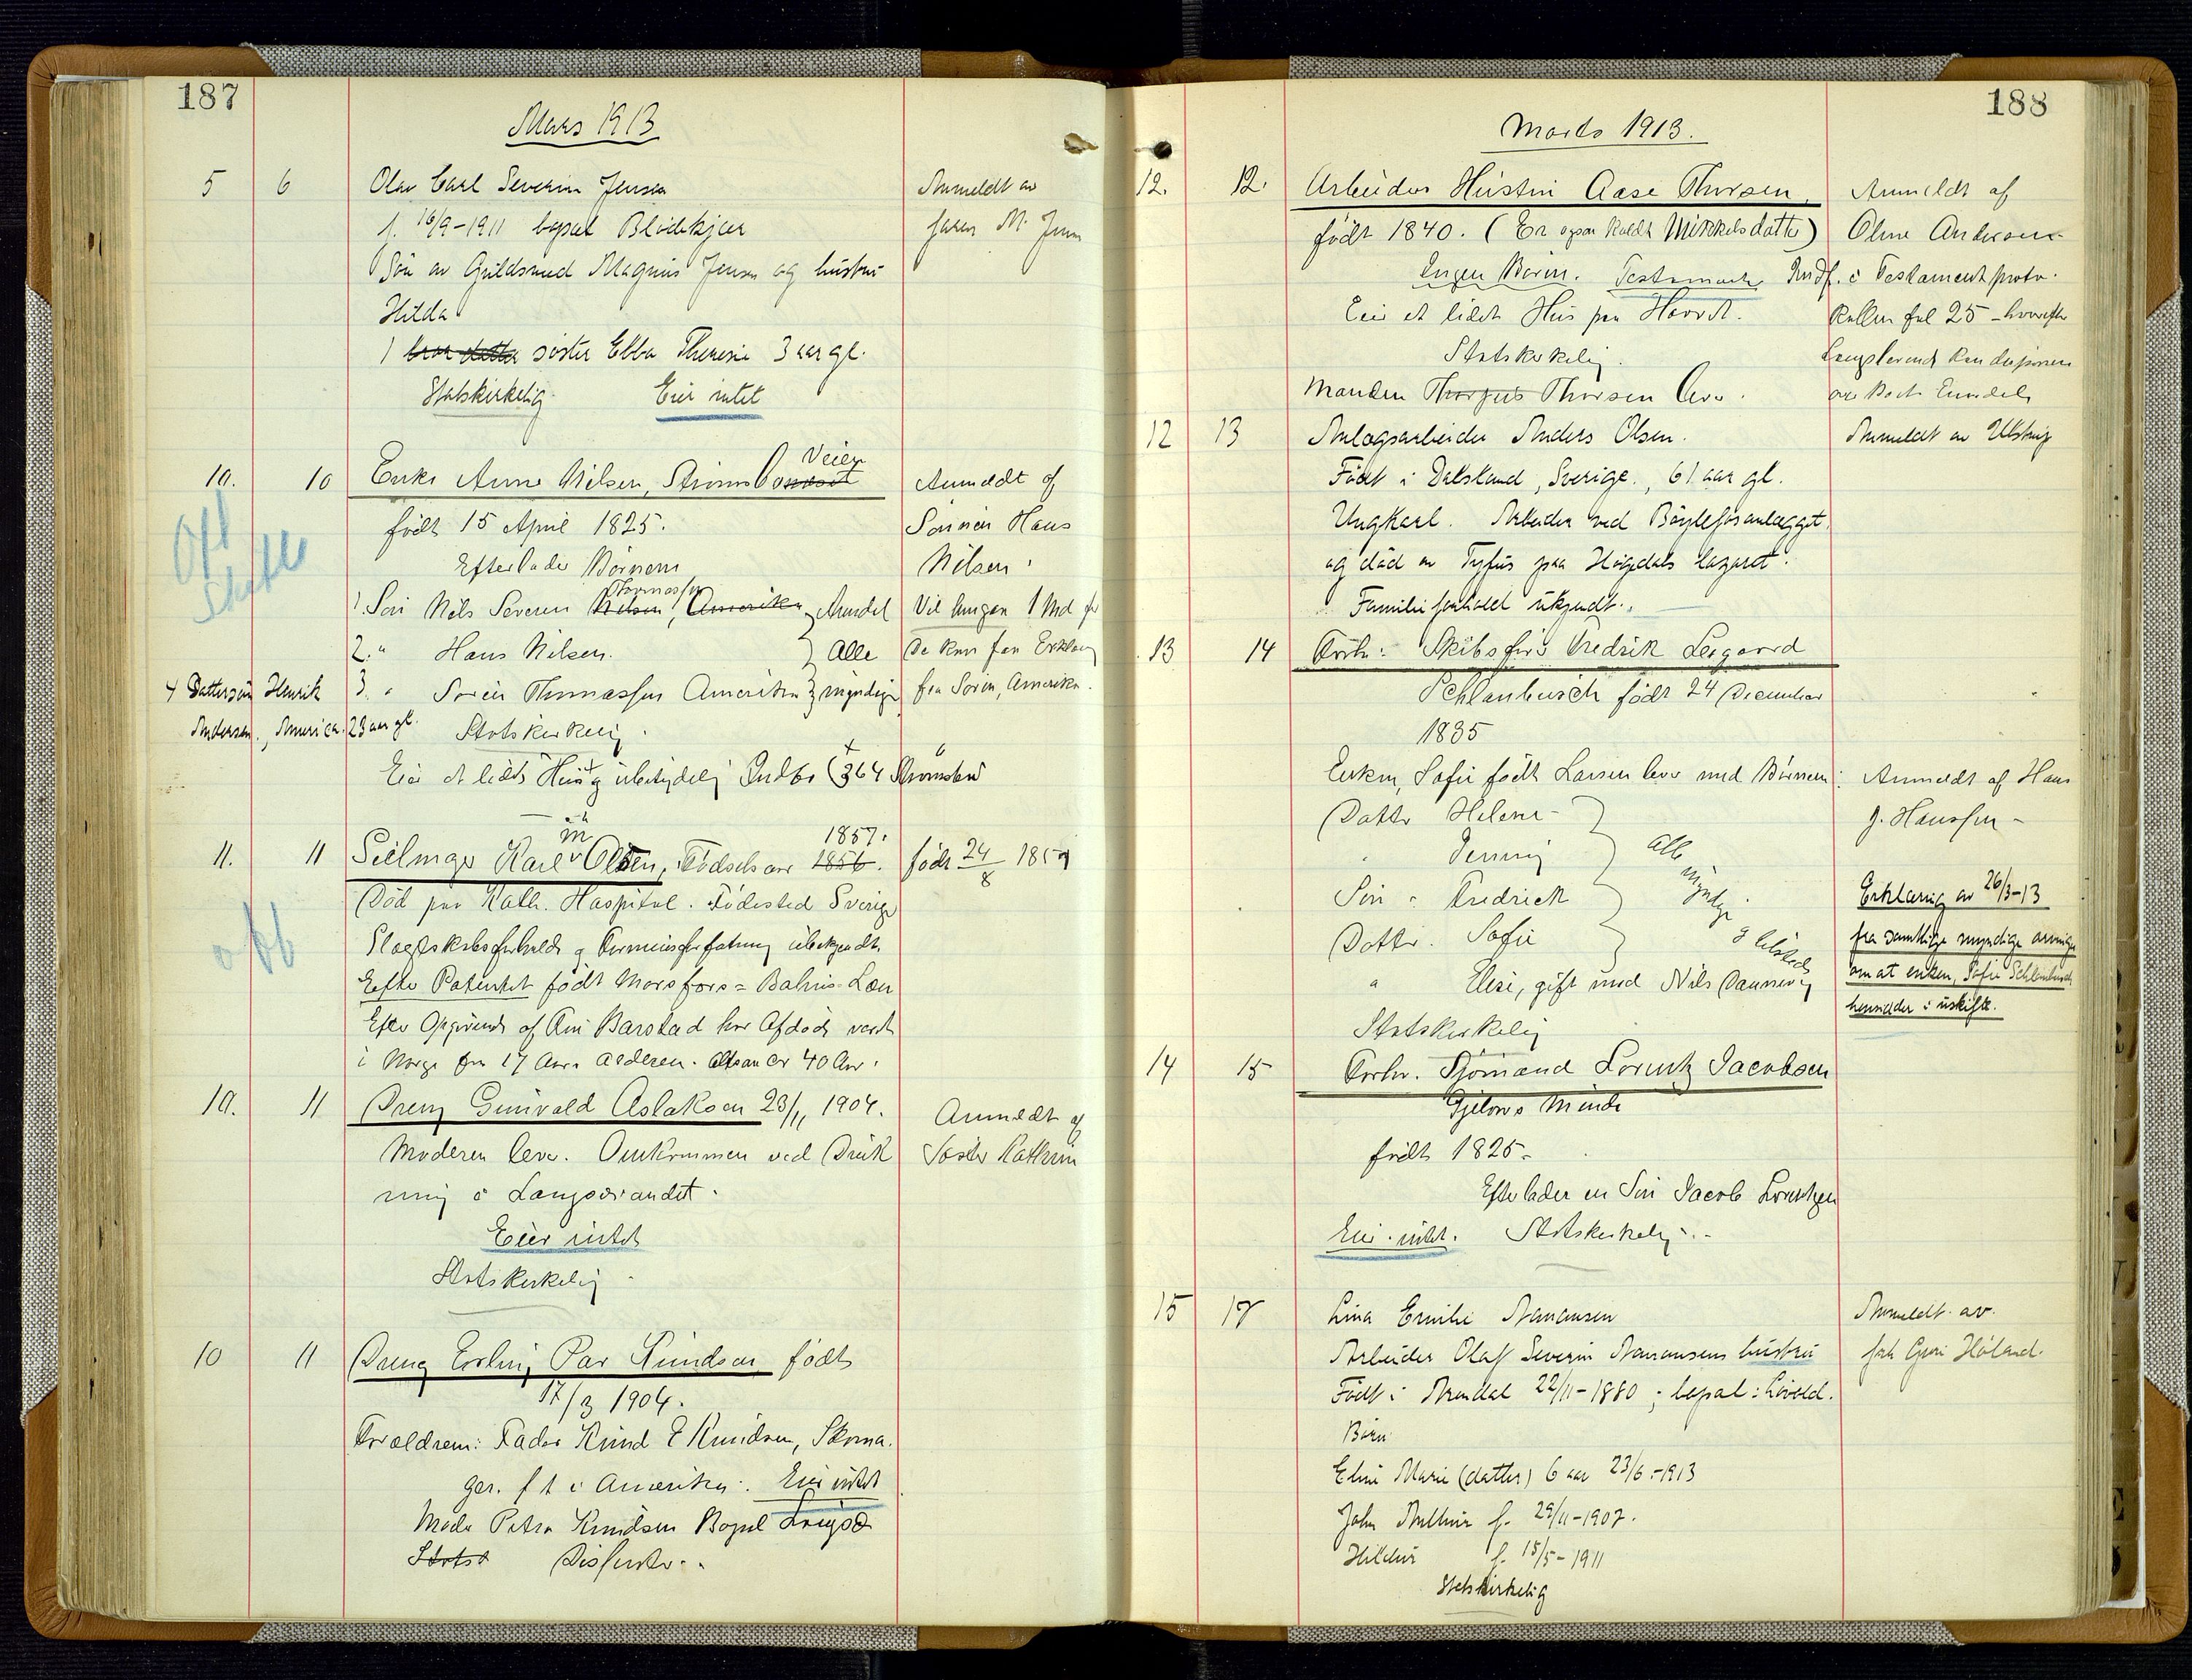 187
Mars 1913
5 6 Olav Carl Severin Jensen
f. 16/9-1911 bopæl Blödekjær
Søn av Guldsmed Magnus Jensen og hustru
Hilda
1 søster Ebba Theresie 3 aar gl.
Statskirkelig Eier intet
Anmeldt av
faren M. Jensen
10. 10 Enke Anne Nilsen, Strømsbo Veien
født 15 April 1825.
Efterlader Børnene
1. Søn Nils Severin Nilsen Thomassen, Amerika, Arendal
2. " Hans Nilsen. Alle
3. " Søren Thomassen Amerika myndige
4 Dattersøn Henrik
Andersen, America. 23 aar gl.
Statskirkelig.
Eier et lidet Hus og ubetydelig Indbo (364 Strømsbu
Off
Skifte
Anmeldt af
Sønnen Hans
Nilsen.
Vil have 1 Md før
De kan faa Erklæring
fra Søren, Amerika.
11. 11 Seilmager Karl Olsen, Fødselsaar 1856. 1857.
født 24/8 1857
Død paa Kath. Hospital. Fødested Sverige
Slægtskabsforhold og Formuesforfatning ubekjendt.
Efter Patentet født Morsfors = Bahus Læn
Efter Opgivende af Barstad har Afdøde været
i Norge fra 17 Aars Alderen. Altsaa er 40 Aar.
off
10. 11 Dreng Gunvald Aslaksen 23/11 1904.
Moderen lever. Omkommen ved Druk
ning i Langsævandet.
Eier intet
Statskirkelig
Anmeldt af
Søster Kathrin
10 11 Dreng Erling Par Knudsen født
17/3 1904.
Forældrene: Fader Knud E Knudsen, Skoma
ger. f t i Amerika. Eier intet
Moder Petra Knudsen Bopæl Langsæ
Statsk Dissenter.
188
Marts 1913.
12. 12. Arbeider Hustru Aase Thorsen,
født 1840. (Er ogsaa kaldt Mikkelsdatter)
Ingen Børn. Testamente Indf. i Testamentproto-
Eier et lidet Hus paa Havst.
Statskirkelig.
Manden Thorsen lever.
Anmeldt af
Oline Andersen
kollen fol 25 - hvorefter
Længstlevende kan disponere
over Boets Eiendele
12 13 Anlægsarbeider Anders Olsen.
Født i Dalsland, Sverige, 61 aar gl.
Ungkarl. Arbeider ved Bøylefosanlægget,
og død av Tyfus paa Høgedals lazaret.
Familieforhold ukjendt.
Anmeldt av Ulstrup
13 14 Forh: Skibsfører Fredrik Lesgaard
Schlanbusch født 24 December
1835
Enken, Sofie født Larsen lever med Børnene:
Datter Helene
" Jenny
Søn - Fredrick
Datter. Sofie
" Elise, gift med Nils Dannevig
Alle
myndige
Statskirkelig
Anmeldt af Hans
J. Hanssen -
Erklæring av 26/3-13
fra samtlige myndige arvinger
om at enken, Sofie Schlanbusch
hensidder i uskifte.
14 15 Forhv. Sjømand Lorentz Jacobsen
Gjelows Minde
født 1825
Efterlader en Søn Jacob Lorentzen
Eier intet. Statskirkelig.
15 17 Lina Emilie Aanonsen
Arbeider Olaf Severin Aanonsens hustru
Født i Arendal 22/11-1880; bopæl: Løvold.
Børn
Eline Marie (datter) 6 aar 23/6-1913
John Arthur f. 29/11-1907.
Hildur f. 15/5-1911
Statskirkelig
Anmeldt av
frk Guri Høland.